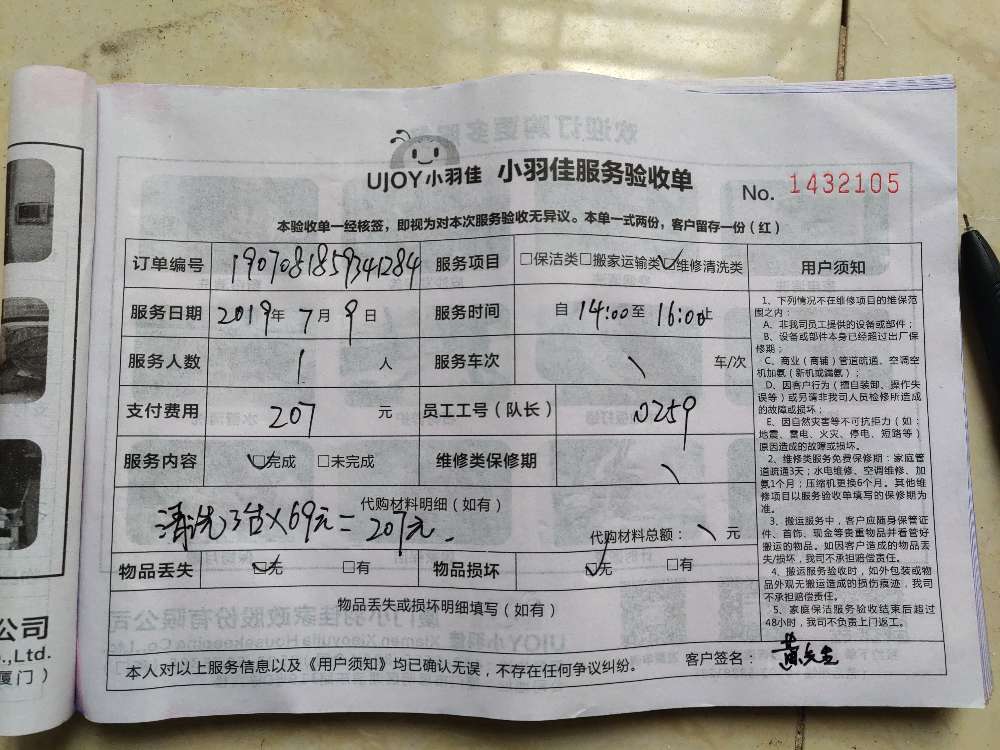 UJOY小羽佳 小羽佳服务验收单
No. 1432105
本验收单一经核签，即视为对本次服务验收无异议。本单一式两份，客户留存一份（红）
订单编号 190708185934128​4 服务项目 □保洁类□搬家运输类☑维修清洗类 用户须知
服务日期 2019年 7月 9日 服务时间 自 14:00至 16:00止
服务人数 1 人 服务车次 \ 车/次
支付费用 207 元 员工工号（队长） 0259
服务内容 ☑完成 □未完成 维修类保修期 \
代购材料明细（如有）
清洗3台×69元=207元.
代购材料总额： \ 元
物品丢失 ☑无 □有 物品损坏 ☑无 □有
物品丢失或损坏明细填写（如有）
本人对以上服务信息以及《用户须知》均已确认无误，不存在任何争议纠纷。 客户签名： 黄先生
1、下列情况不在维修项目的维保范
围之内：
A、非我司员工提供的设备或部件；
B、设备或部件本身已经超过出厂保
修期；
C、商业（商铺）管道疏通、空调空
机加氨（新机或漏氨）；
D、因客户行为（擅自装卸、操作失
误等）或另请非我司人员检修所造成
的故障或损坏；
E、因自然灾害等不可抗拒力（如：
地震、雷电、火灾、停电、短路等）
原因造成的故障或损坏。
2、维修类服务免费保修期：家庭管
道疏通3天；水电维修、空调维修、加
氨1个月；压缩机更换6个月。其他维
修项目以服务验收单填写的保修期为
准。
3、搬运服务中，客户应随身保管证
件、首饰、现金等贵重物品并看管好
搬运的物品。如因客户造成的物品丢
失/损坏，我司不承担赔偿责任。
4、搬运服务验收时，如外包装或物
品外观无搬运造成的损伤痕迹，我司
不承担赔偿责任。
5、家庭保洁服务验收结束后超过
48小时，我司不负责上门返工。
公司
.,Ltd.
厦门）